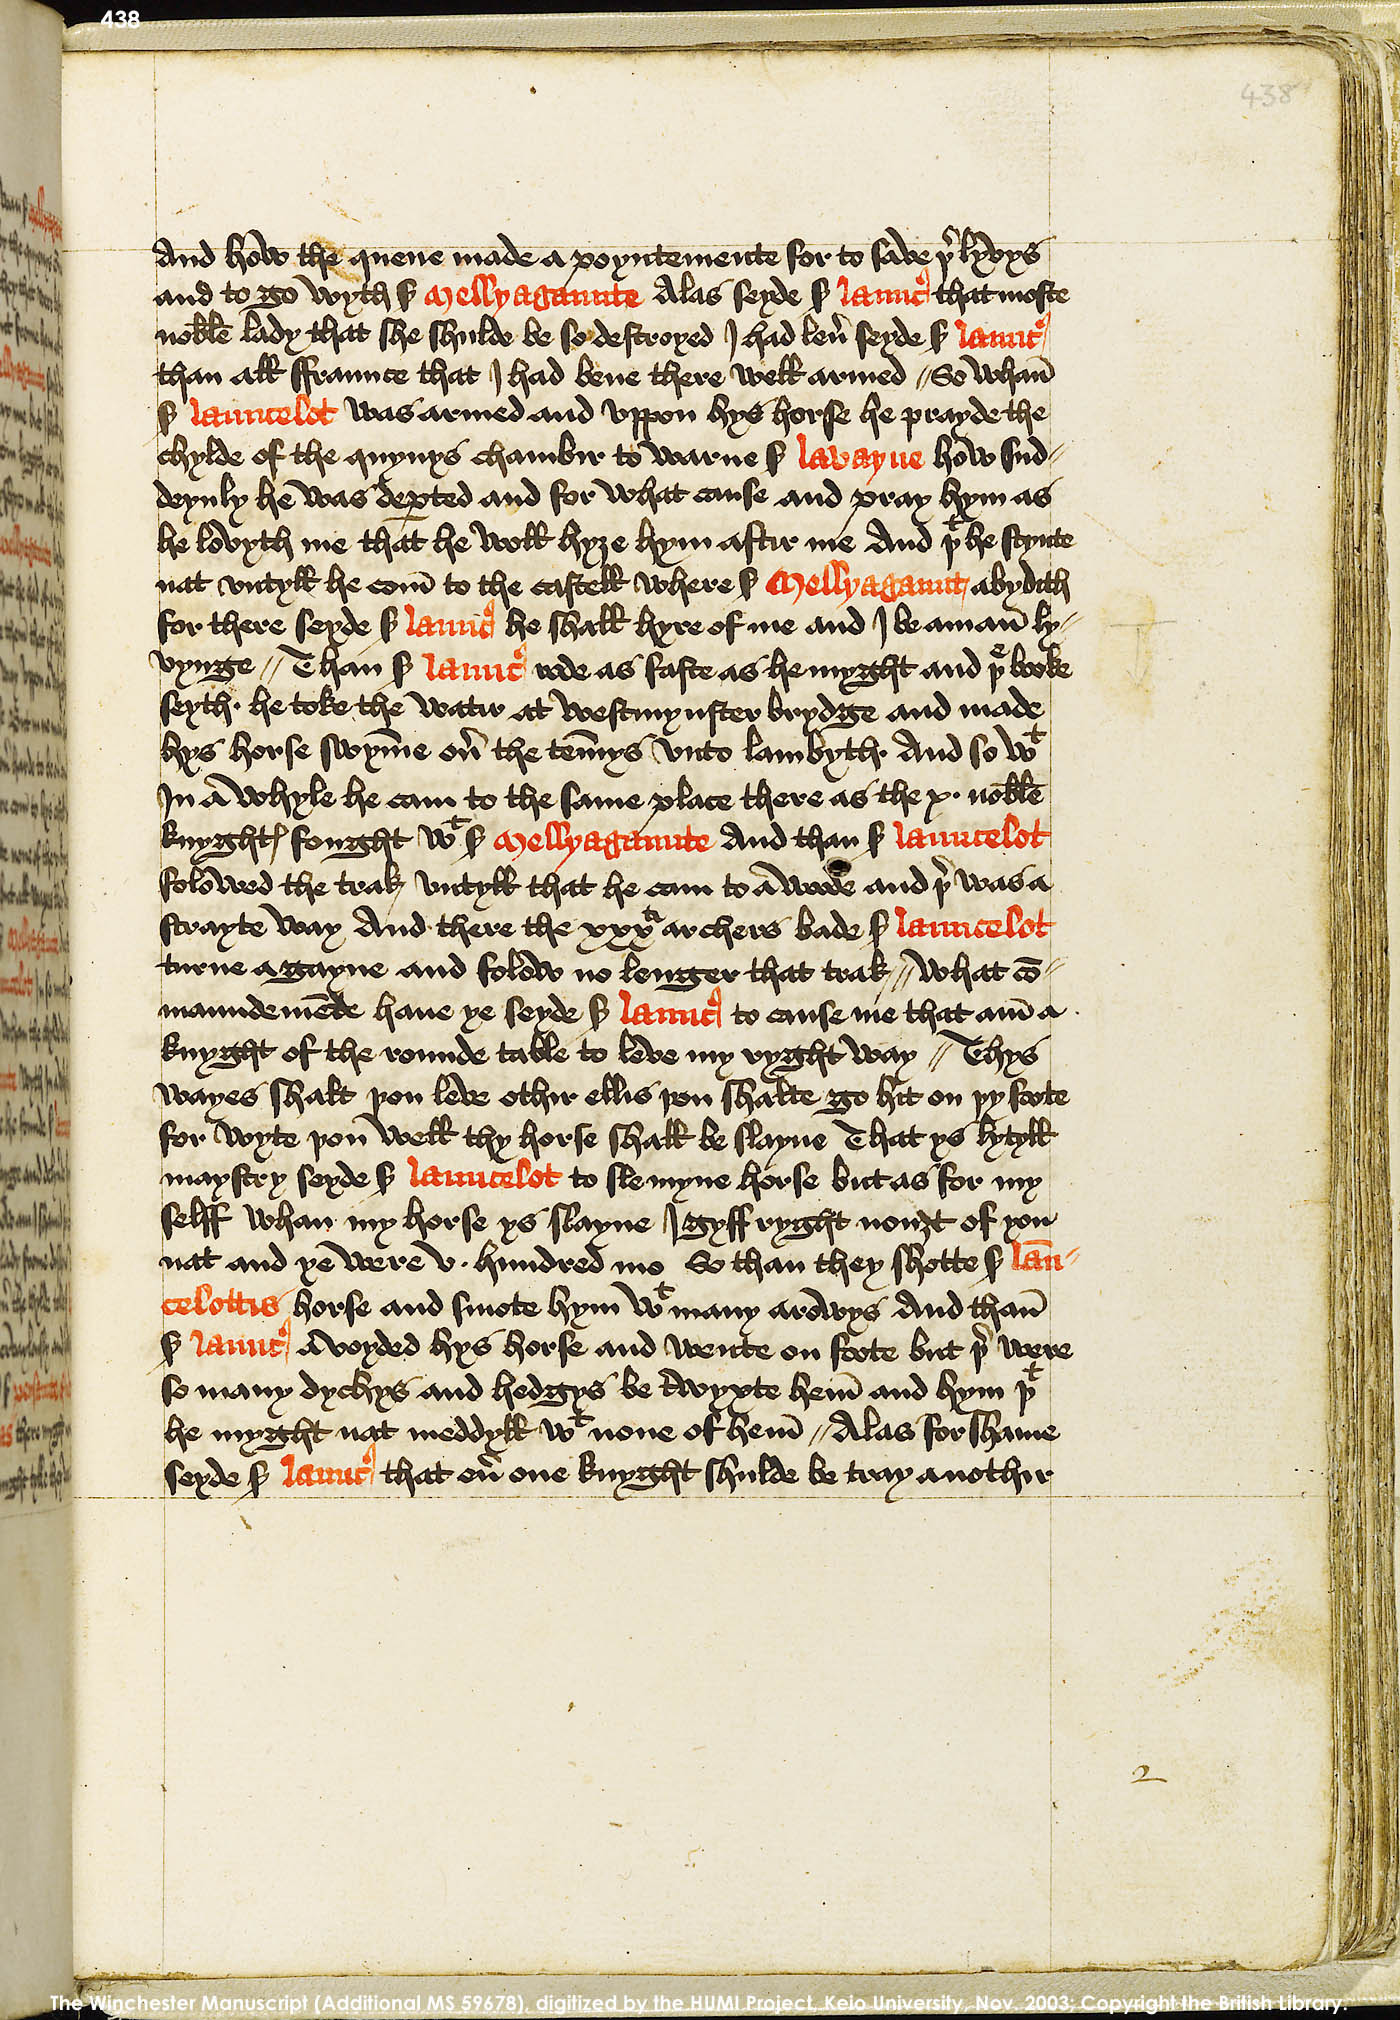 438
438
And how the quene made a poyntemente for to save þr lyvys
and to go wyth sr Mellyagaunte Alas seyde sr launcꝰ that moste
noble lady that she shulde be so destroyed I had leuer seyde sr launcꝰ
than all ffraunce that I had bene there well armed // So whan̄
sr launcelot was armed and vppon hys horse he prayde the
chylde of the quynys chambir to warne sr lavayne how sud//
deynly he was deꝑted and for what cause and pray hym as
he lovyth me that he woll hyȝe hym aftir me And þt he stynte
nat vntyll he com̄ to the castell where sr Mellyagaunt abydith
for there seyde sr launcꝰ he shall hyre of me and I be a man̄ ly//
vynge // Than sr launcꝰ rode as faste as he myght and þe booke
seyth · he toke the watir at westmynster brydge and made
hys horse swym̄e oủ the tem̄ys vnto lambyth · And so wt
In a whyle he cam to the same place there as the x · noble
knyghtꝭ fought wt sr Mellyagaunte And than sr launcelot
folowed the trak vntyll that he cam to a woode and þr was a
strayte way And there the xxxti archers bade sr launcelot
turne agayne and folow no lenger that trak // what cō//
maundemēte haue ye seyde sr launcꝰ to cause me that am̄ a
knyght of the rounde table to leve my ryght way // Thys
wayes shalt þou leve othir ellis þou shalte go hit on þy foote
for wyte þou well thy horse shall be slayne That ys lytyll
maystry seyde sr launcelot to sle myne horse but as for my
selff whan my horse ys slayne I gyff ryght nouȝt of you
nat and ye were v · hundred mo So than they shotte sr lāu//
celottis horse and smote hym wt many arowys And than̄
sr launcꝰ avoyded hys horse and wente on foote but þr were
so many dychys and hedgys be twyxte hem̄ and hym þt
he myght nat meddyll wt none of hem̄ // Alas for shame
seyde sr launcꝰ that oủ one knyght shulde be tray anothir
2
The Winchester Manuscript (Additional MS 59678), digitized by the HUMI Project, Keio University, Nov. 2003; Copyright the British Library.